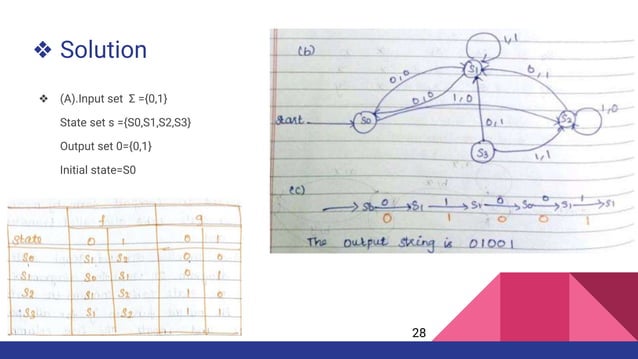 ❖ Solution
❖ (A).Input set Σ ={0,1}
State set s ={S0,S1,S2,S3}
Output set 0={0,1}
Initial state=S0
f g
state 0 1 0 1
S0 S1 S2 0 0
S1 S0 S1 0 1
S2 S1 S2 1 0
S3 S1 S2 1 1
(b)
1,1
S1
0,0
0,0
0,1
1,0
1,0
start
S0
S2
0,1
S3
1,1
(c)
0 1 0 0 1
→ S0 → S1 → S1 → S0 → S1 → S1
0 1 0 0 1
The output string is 01001
28